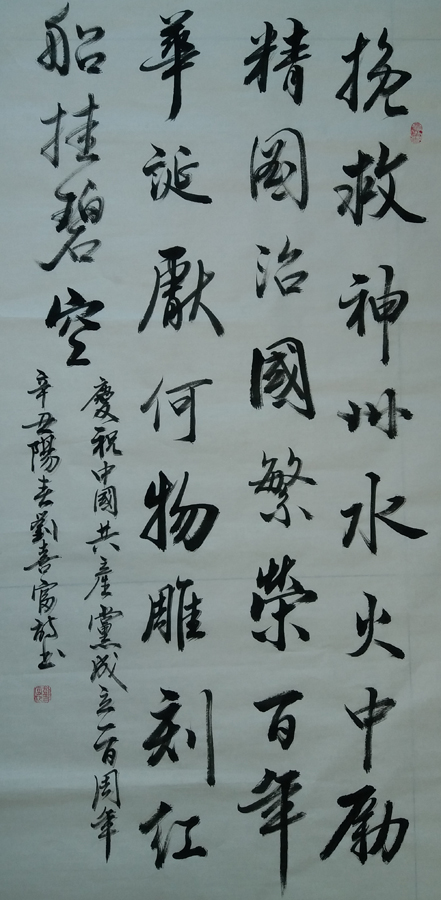 挽救神州水火中勵
精圖治國繁榮百年
華誕獻何物雕刻紅
船挂碧空
慶祝中國共產黨成立一百周年
辛丑陽春劉喜富詩书